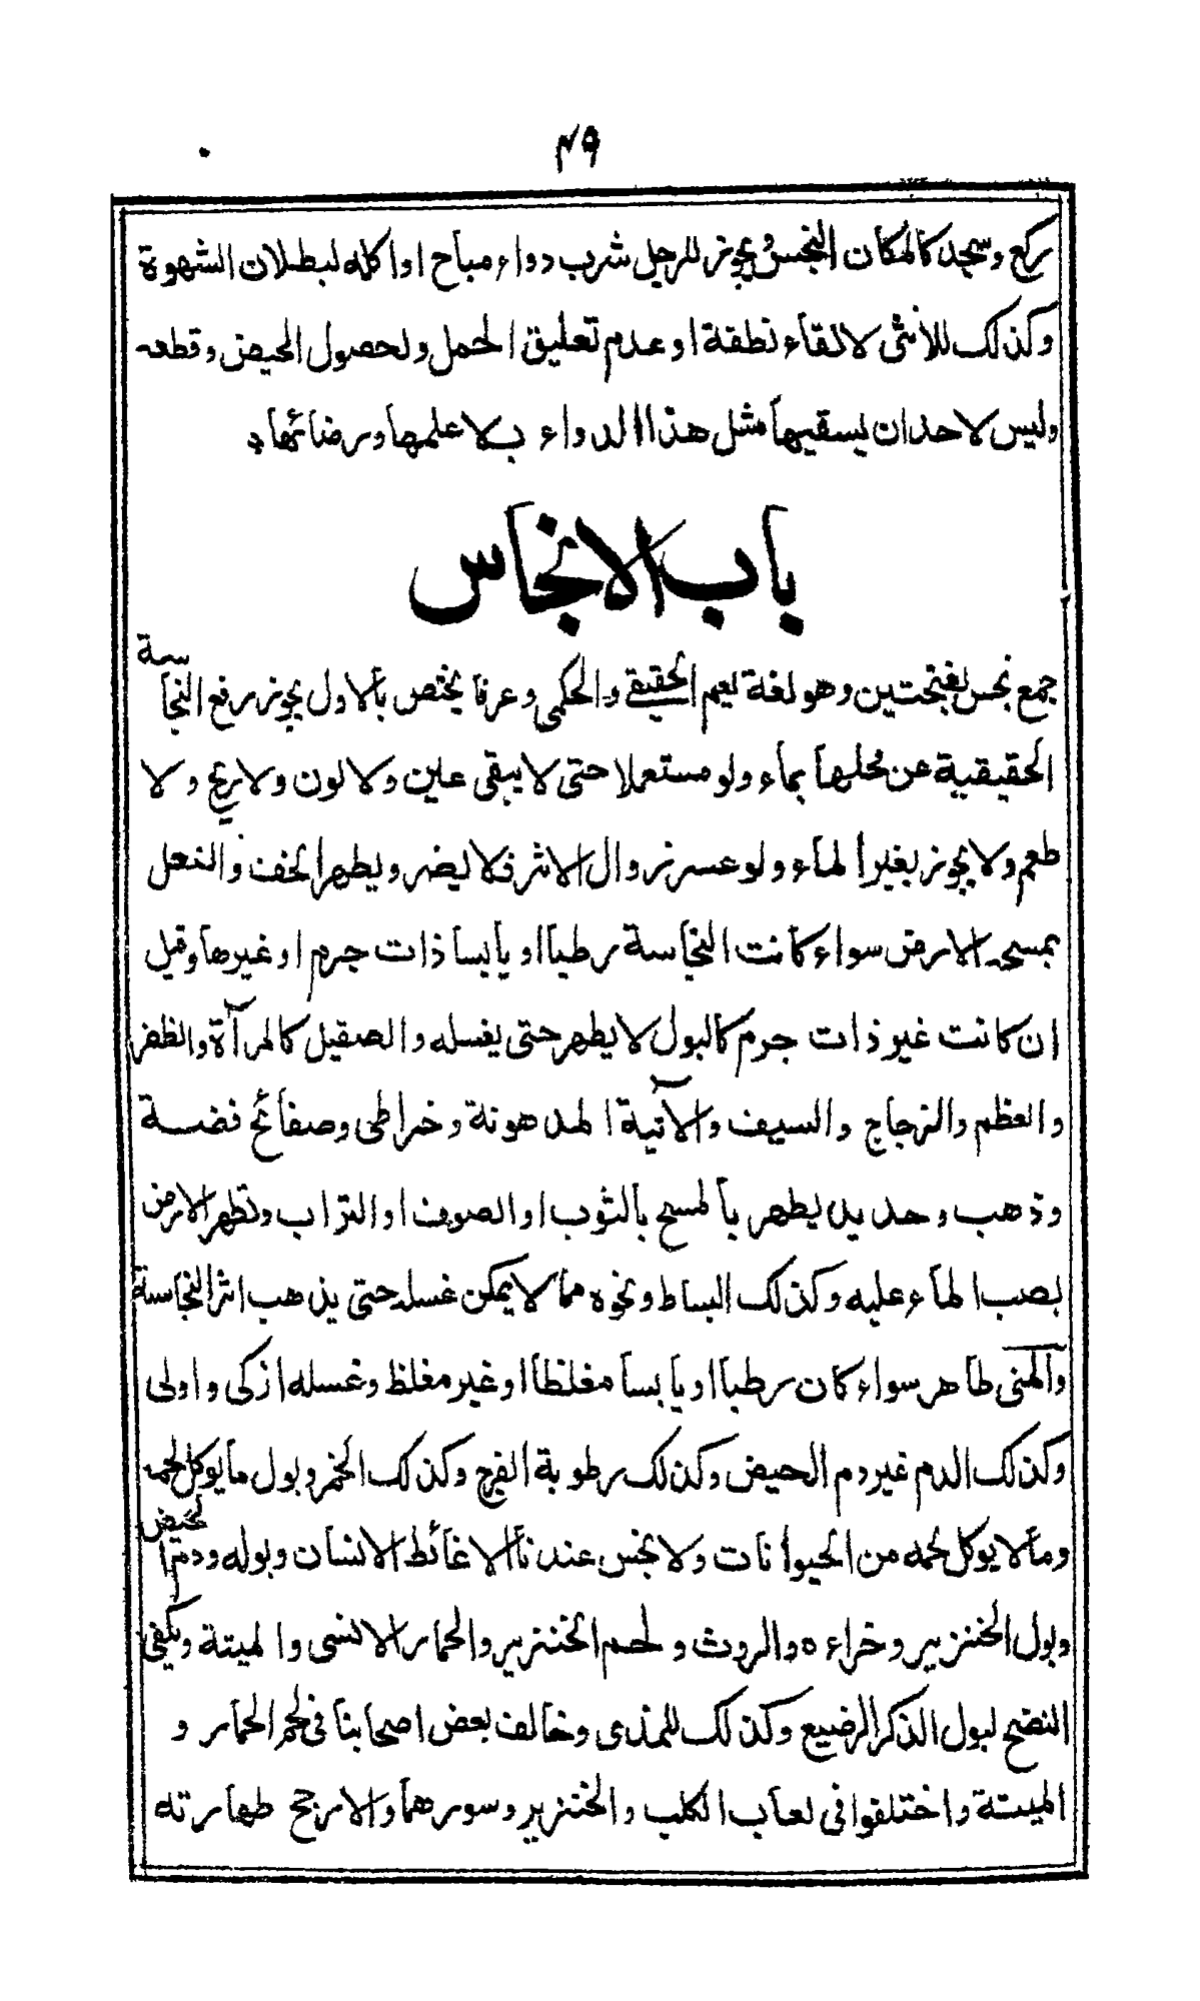 ۴۹
ركع وسجد كالمكان النجس ويجوز للرجل شرب دواء مباح او اكله لبطلان الشهوة
وكذلك للأنثى لالقاء نطفة او عدم تعليق الحمل ولحصول الحيض وقطعه
وليس لاحد ان يسقيها مثل هذا الدواء بلا علمها ورضائها
باب الانجاس
جمع نجس بفتحتين وهو لغة يعم الحقيقي والحكمى وعرفا يختص بالاول يجوز رفع النجاسة
الحقيقية عن محلها بماء ولو مستعملا حتى لا يبقى عين ولا لون ولا ريح ولا
طعم ولا يجوز بغير الماء ولو عسر زوال الاثر فلا يضر ويطهر الخف والنعل
بمسحه الارض سواء كانت النجاسة رطبا او يابسا ذات جرم او غيرها وقيل
ان كانت غير ذات جرم كالبول لا يطهر حتى يغسله والصقيل كالمرآة والظفر
والعظم والزجاج والسيف والآنية المدهونة وخراطى وصفائح فضة
وذهب وحديد يطهر بالمسح بالثوب او الصوف او التراب وتطهر الارض
بصب الماء عليه وكذلك البساط ونحوه مما لا يمكن غسله حتى يذهب اثر النجاسة
والمنى طاهر سواء كان رطبا او يابسا مغلظا او غير مغلظ وغسله ازكى واولى
وكذلك الدم غير دم الحيض وكذلك رطوبة الفرج وكذلك الخمر وبول ما يوكل لحمه
وما لا يوكل لحمه من الحيوانات ولا نجس عندنا الا غائط الانسان وبوله ودم الحيض
وبول الخنزير وخراءه والروث ولحم الخنزير والحمار الانسى والميتة ويكفى
النضح لبول الذكر الرضيع وكذلك للمذى وخالف بعض اصحابنا فى لحم الحمار و
الميتة واختلفوا فى لعاب الكلب والخنزير وسورهما والارجح طهارته